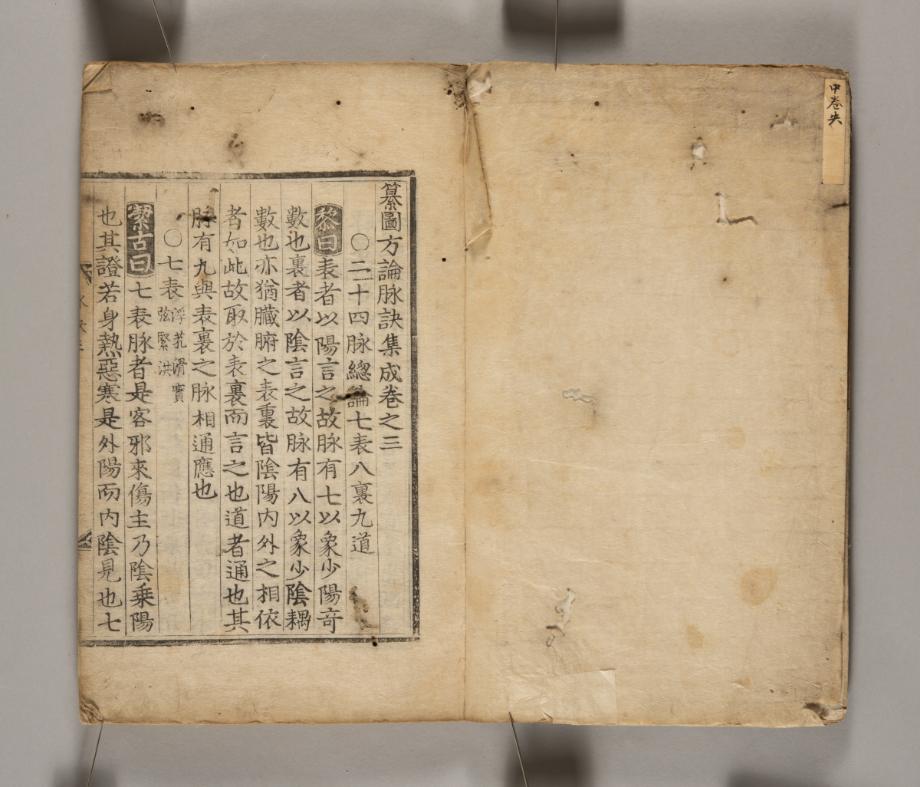 中卷失
纂圖方論脉訣集成卷之三
○二十四脉總論七表八裏九道
黎曰表者以陽言之故脉有七以象少陽竒
數也裏者以陰言之故脉有八以象少陰耦
數也亦猶臓腑之表裏皆陰陽内外之相依
者如此故取於表裏而言之也道者通也其
脉有九與表裏之脉相通應也
○七表浮芤滑實弦緊洪
潔古曰七表脉者是客邪來傷主乃陰乗陽
也其證若身熱惡寒是外陽而内陰見也七